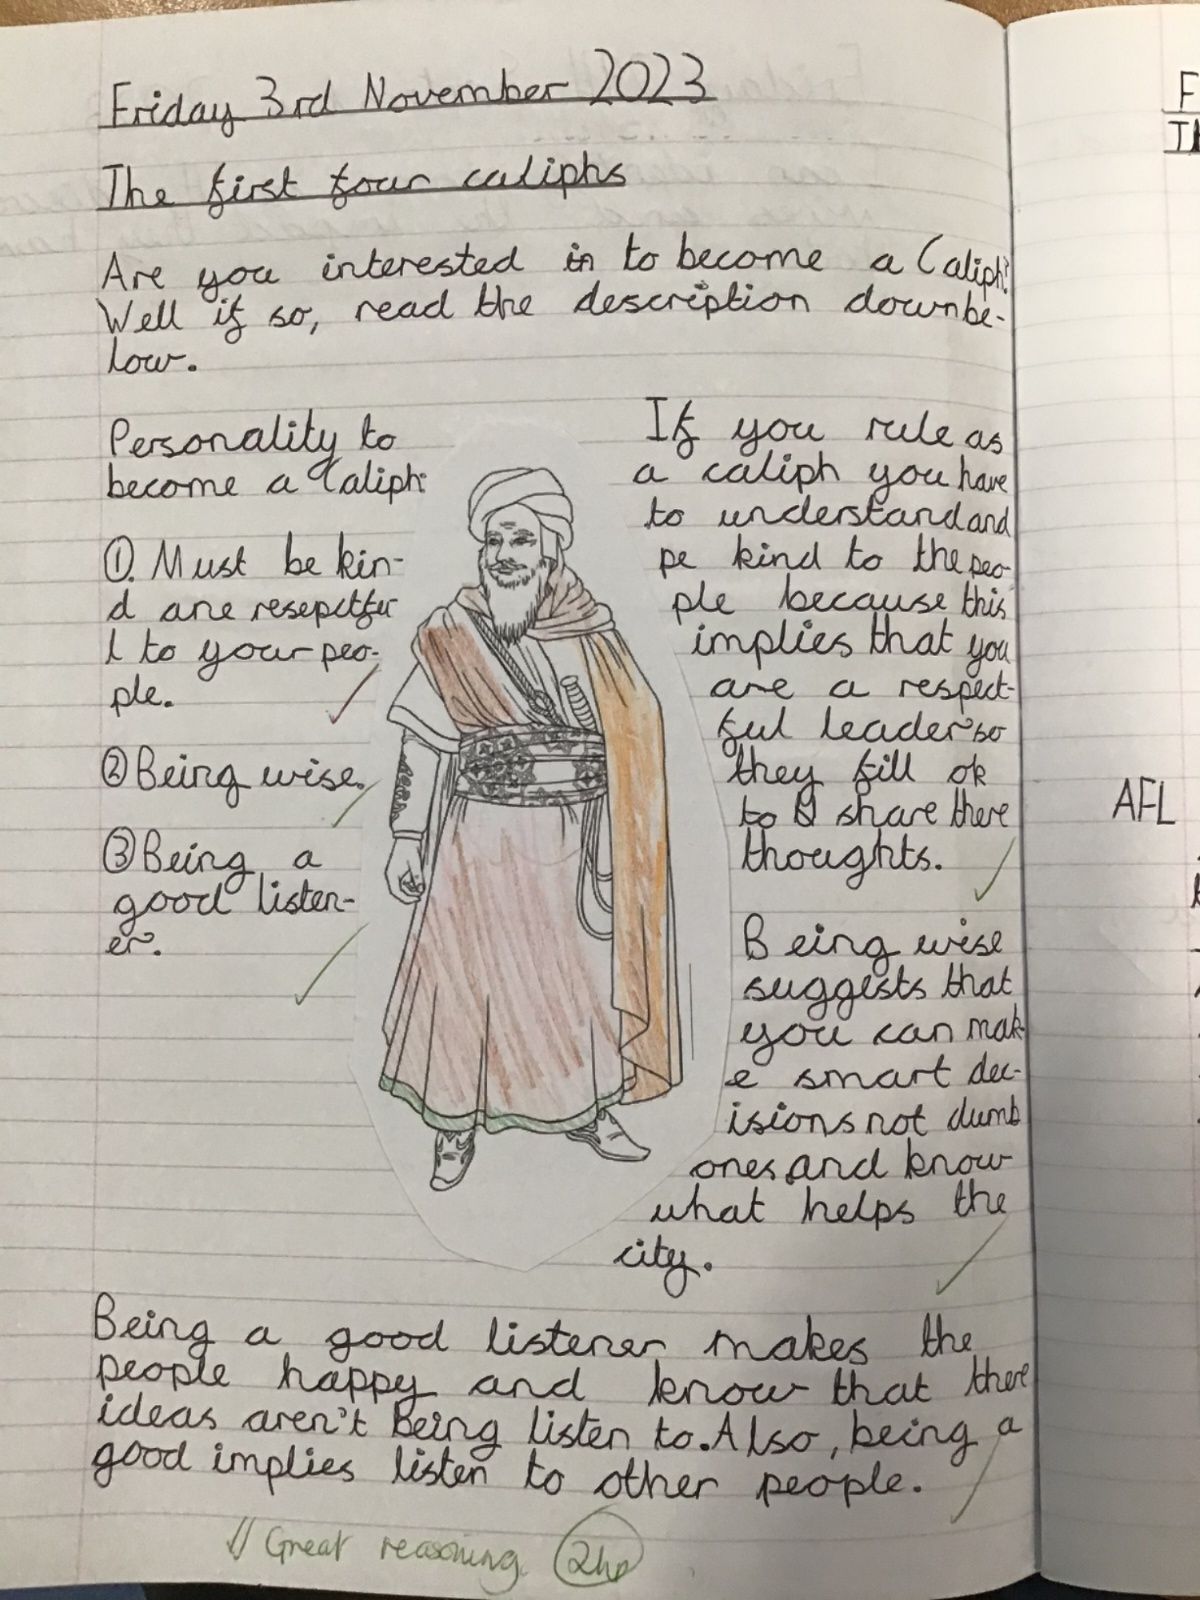 Friday 3rd November 2023
The first four caliphs
Are you interested in to become a Caliph?
Well if so, read the description downbe-
low.
Personality to
become a Caliph:
①. Must be kin-
d ane resepctfu
l to your peo-
ple.
② Being wise.
③ Being a
good listen-
er.
If you rule as
a caliph you have
to understand and
pe kind to the peo-
ple because this
implies that you
are a respect-
ful leader so
they fill ok
to share there
thoughts.
Being wise
suggests that
you can mak-
e smart dec-
isions not dumb
ones and know
what helps the
city.
Being a good listener makes the
people happy and know that there
ideas aren't Being listen to. Also, being a
good implies listen to other people.
Great reasoning. 2hp
F
AFL